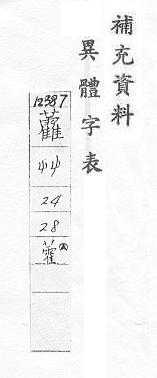 補充資料
異體字表
12387
艸
24
28
藿